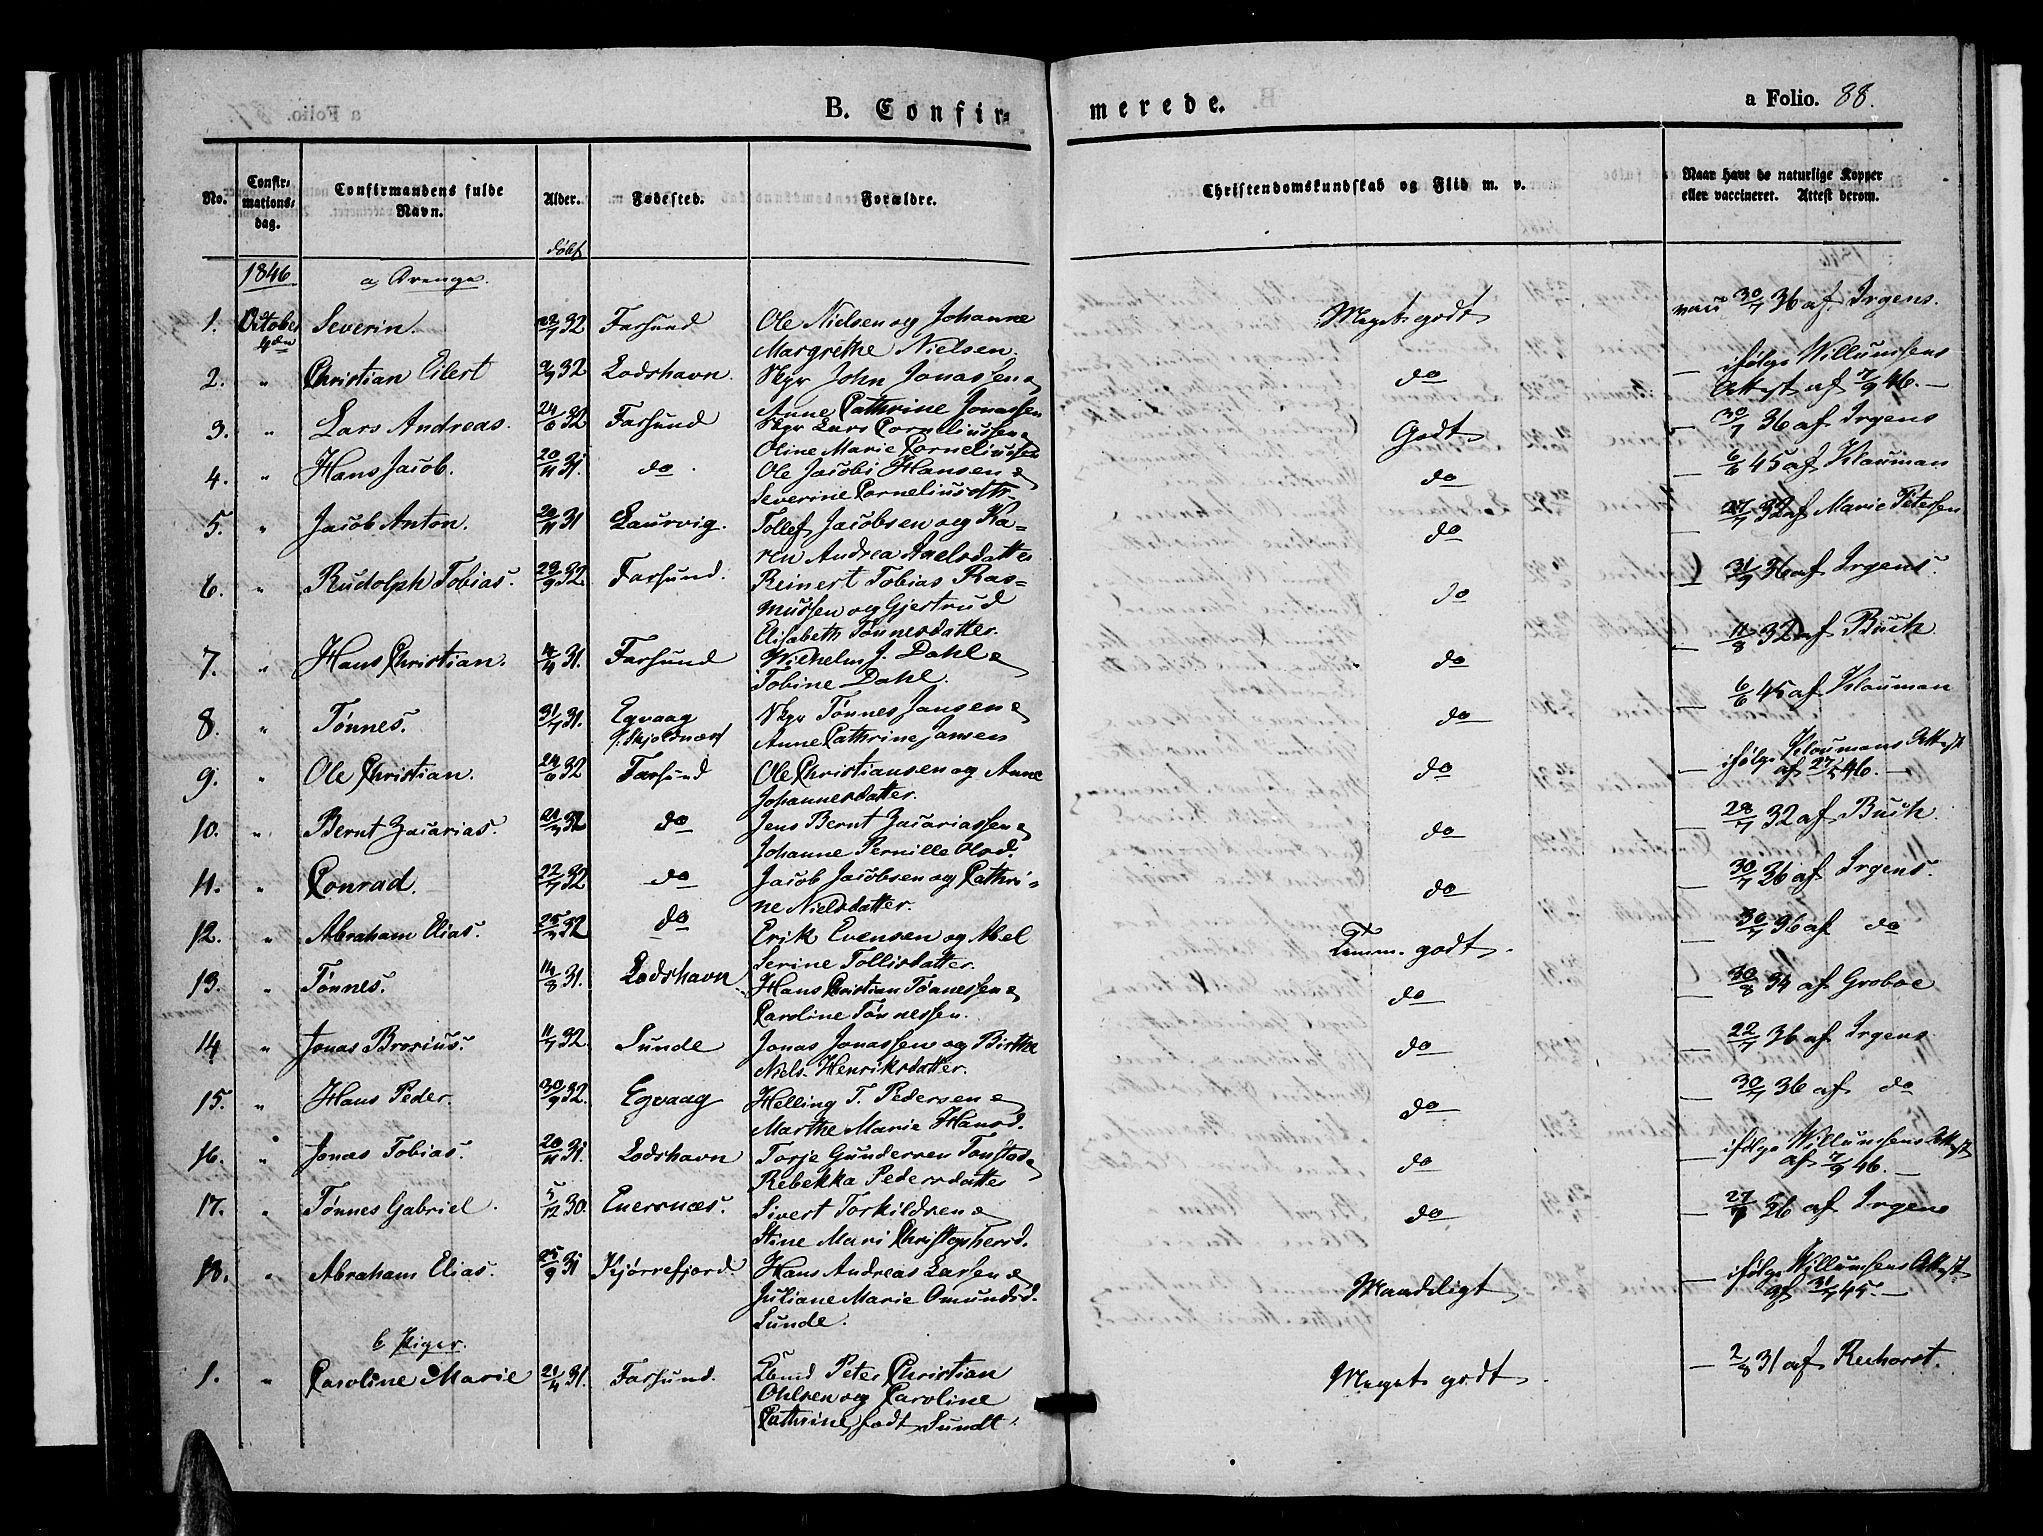 B. Confir-merede.
a Folio. 88.
No. Confirmationsdag. Confirmandens fulde Navn. Alder. Fødested. Forældre. Christendomskundskab og Flid m. v. Naar havt de naturlige Kopper eller vaccineret. Attest derom.
døbt
1846 a, Drenge.
1. October 4de Severin. 22/7 32 Farsund Ole Nielsen og Johanne Meget godt vacc 30/7 36 af Irgens.
Margrethe Nielsen.
2. " Christian Eilert 9/9 32 Lodshavn. Skpr John Jonassen & do — ifølge Willumsens
Anne Cathrine Jonassen Attest af 7/9 46. —
3. " Lars Andreas. 24/6 32 Farsund Skpr Lars Corneliussen & Godt — 30/7 36 af Irgens
Oline Marie Corneliussen
4. " Hans Jacob. 20/11 31. do Ole Jacobi Hansen & do — 6/6 45 af Klauman
Severine Corneliusdtr.
5. " Jacob Anton. 20/11 31 Laurvig. Tollef Jacobsen og Ka- do — 27/7 32 af Marie Petersen
ren Andrea Axelsdatter
6. " Rudolph Tobias. 28/9 32 Farsund. Reinert Tobias Ras- do — 31/7 36 af Irgens.
mussen og Gjertrud
Elisabeth Tønnesdatter.
7. " Hans Christian. 4/4 31. Farsund Wilhelm J. Dahl & do — 11/8 32 af Buch
Tobine Dahl.
8. " Tønnes. 31/7 31. Egvaag Skpr Tønnes Jansen & do — 6/6 45 af Klauman
p. Skjoldnæs Anne Cathrine Jansen
9. " Ole Christian. 24/6 32 Farsund Ole Christiansen og Anne do — ifølge Klaumans Attest
Johannesdatter. af 27/5 46. —
10. " Bernt Zacarias. 32 do Jens Bernt Zacariassen & do — 28/7 32 af Buch.
Johanne Pernille Olsd.
11. " Conrad. 22/7 32 do Jacob Jacobsen og Cathri- do — 30/7 36 af Irgens.
ne Nielsdatter.
12. " Abraham Elias. 32 do Erik Evensen og Abel Temm. godt — 30/7 36 af do
Serine Tollisdatter.
13. " Tønnes. 14/8 31. Lodshavn Hans Christian Tønnessen & do — 30/8 34 af Groboe
Caroline Tønnessen.
14 " Jonas Brorius. 11/7 32. Sunde Jonas Jonassen og Birthe do — 22/7 36 af Irgens
Niels. Henriksdatter.
15. " Hans Peder. 30/9 32. Egvaag Helling T. Pedersen & do — 30/7 36 af do
Marthe Marie Hansd.
16. " Jonas Tobias. 20/11 31. Lodshavn Torje Gundersen Tonstad & do — ifølge Willumsens Attest
Rebekka Pedersdatter af 7/9 46. —
17. " Tønnes Gabriel. 5/12 30. Enersnæs. Sivert Torkildsen & do — 36 af Irgens
Stine Mari Christophersd.
18. " Abraham Elias. 25/9 31 Kjørrefjord. Hans Andreas Larsen & Maadeligt — ifølge Willumsens Attest
Juliane Marie Omundsd. af 31/7 45. —
Sunde.
b Piger.
1. " Caroline Marie 21/4 31. Farsund. Peter Christian Meget godt — 2/8 31 af Reehorst.
Ohlsen og Caroline
Cathrine, født Sundt